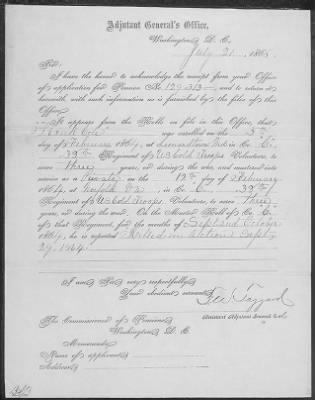 Adjutant General's Office,
Washington, D. C.,
July 21, 1865
Sir:
I have the honor to acknowledge the receipt from your Office
of application for Pension No. 129313, and to return it
herewith, with such information as is furnished by the files of this
Office.
It appears from the Rolls on file in this Office, that
was enrolled on the 5th
day of February 1864, at in Co.
39th Regiment of US Cold Troops Volunteers, to serve
Three years, or during the war, and mustered into
service as a Private on the 12th day of February
1864, at Norfolk Va, in Co. 39th
Regiment of US Cold Troops Volunteers, to serve Three
years, or during the war. On the Muster Roll of Co.
of that Regiment, for the months of Sept and October
1864, he is reported Killed in Action Sept
29 1864.
I am, Sir, very respectfully,
Your obedient servant,
Assistant Adjutant General
The Commissioner of Pensions,
Washington, D. C.
Memoranda:
Name of applicant,
Address,